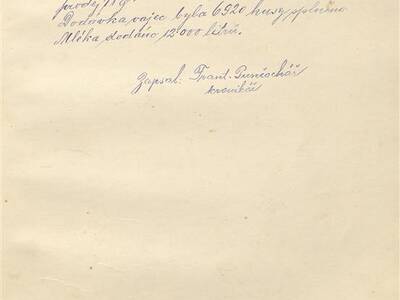 prodej
Dodávka vajec byla 6920 kusy splněna
Mléka dodáno 12 000 litrů.
Zapsal: Frant. Punčochář
kronikář